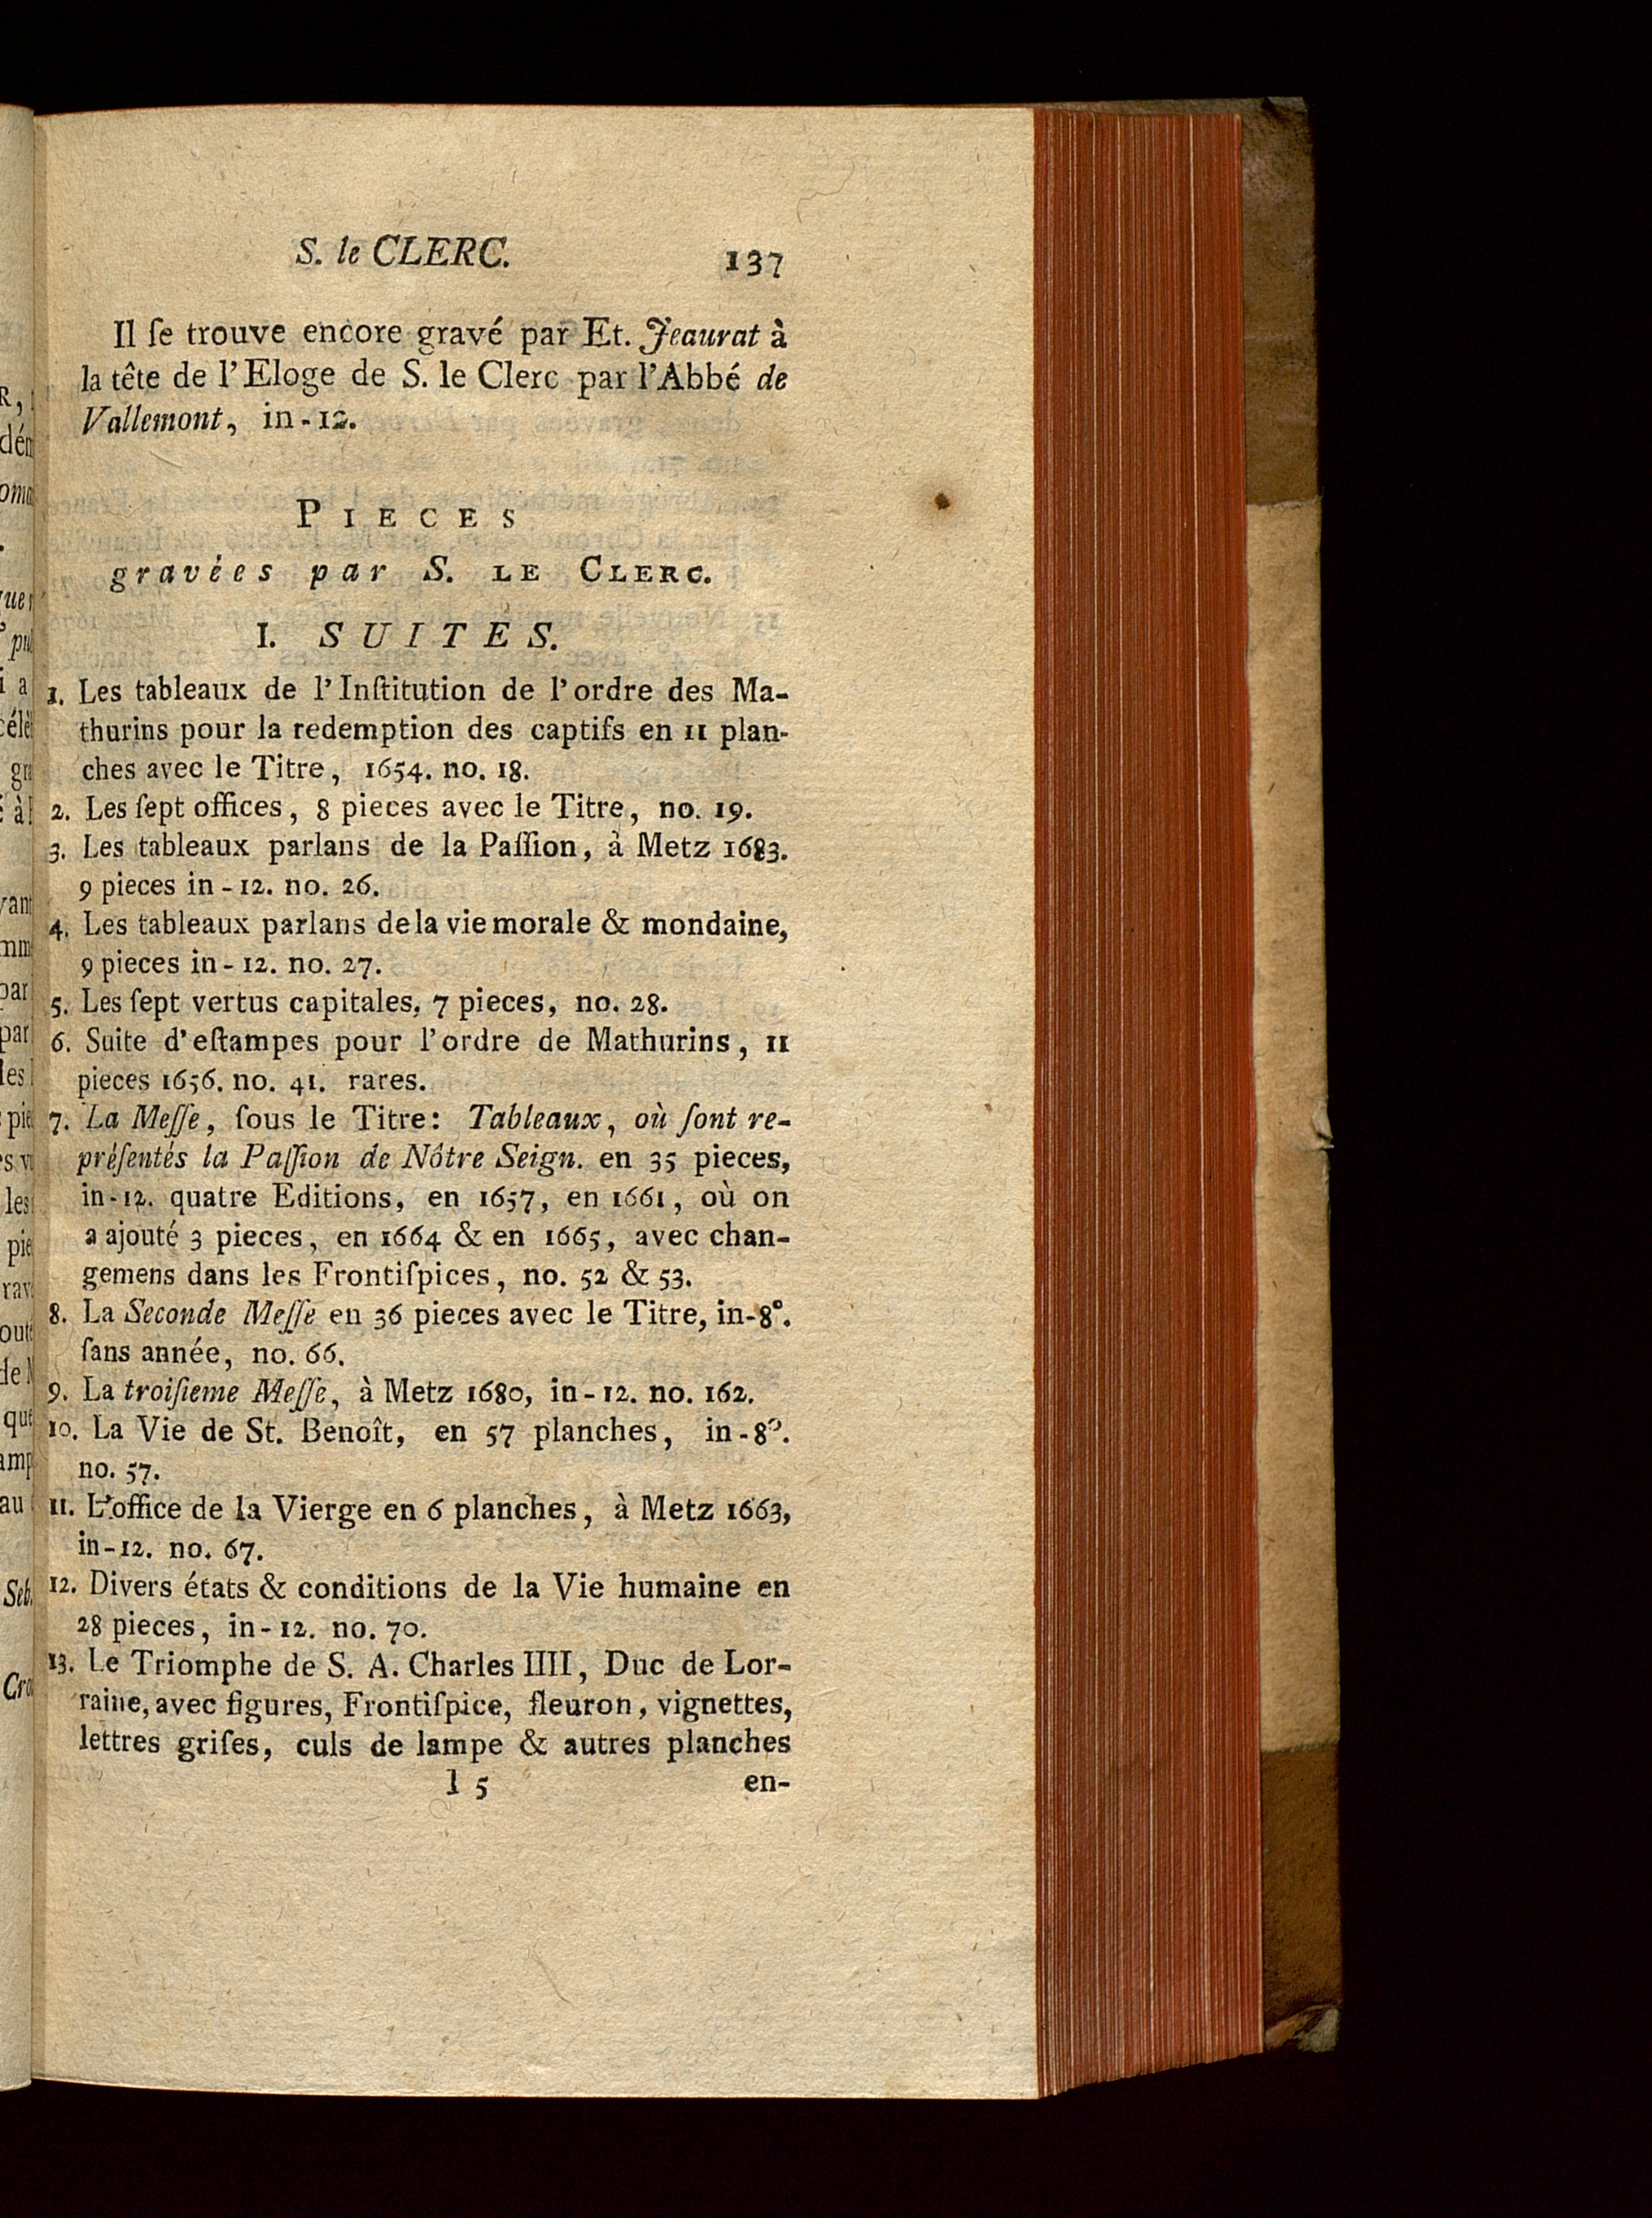 S. le CLERC. 137
Il ſe trouve encore gravé par Et. Jeaurat à
la tête de l'Eloge de S. le Clerc par l'Abbé de
Vallemont, in-12.
PIECES
gravées par S. LE CLERC.
I. SUITES.
1. Les tableaux de l'Inſtitution de l'ordre des Ma-
thurins pour la redemption des captifs en 11 plan-
ches avec le Titre, 1654. no. 18.
2. Les ſept offices, 8 pieces avec le Titre, no. 19.
3. Les tableaux parlans de la Paſſion, à Metz 1683.
9 pieces in-12. no. 26.
4. Les tableaux parlans de la vie morale & mondaine,
9 pieces in-12. no. 27.
5. Les ſept vertus capitales, 7 pieces, no. 28.
6. Suite d'eſtampes pour l'ordre de Mathurins, 11
pieces 1656. no. 41. rares.
7. La Meſſe, ſous le Titre: Tableaux, où ſont re-
préſentés la Paſſion de Nôtre Seign. en 35 pieces,
in-12. quatre Editions, en 1657, en 1661, où on
a ajouté 3 pieces, en 1664 & en 1665, avec chan-
gemens dans les Frontiſpices, no. 52 & 53.
8. La Seconde Meſſe en 36 pieces avec le Titre, in-8°.
ſans année, no. 66.
9. La troiſieme Meſſe, à Metz 1680, in-12. no. 162.
10. La Vie de St. Benoît, en 57 planches, in-8°.
no. 57.
11. L'office de la Vierge en 6 planches, à Metz 1663,
in-12. no. 67.
12. Divers états & conditions de la Vie humaine en
28 pieces, in-12. no. 70.
13. Le Triomphe de S. A. Charles IIII, Duc de Lor-
raine, avec figures, Frontiſpice, fleuron, vignettes,
lettres griſes, culs de lampe & autres planches
I 5 en-